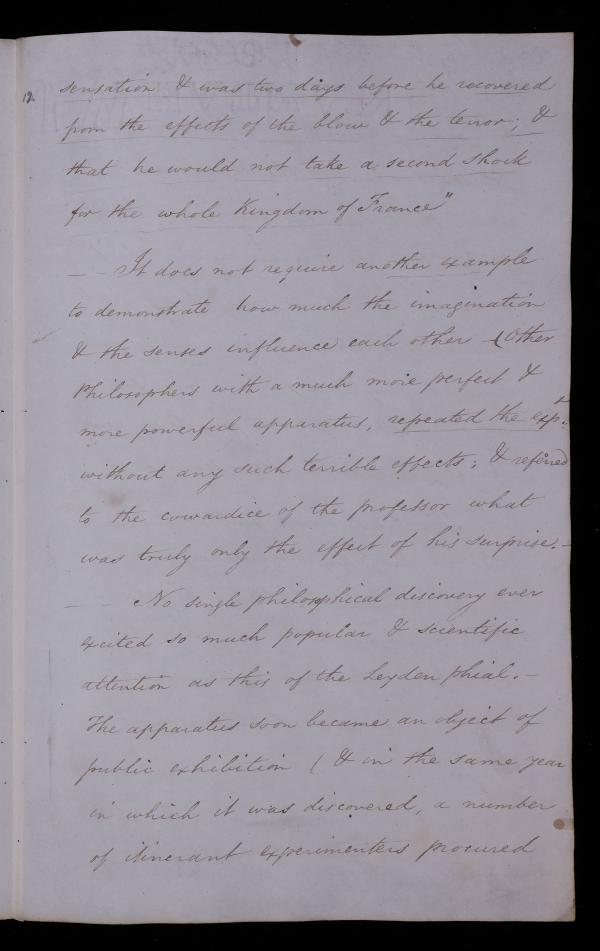 12
sensation & was two days before he recovered
from the effects of the blow & the terror; &
that he would not take a second shock
for the whole Kingdom of France"
— — It does not require another example
to demonstrate how much the imagination
& the senses influence each other – (Other
Philosophers with a much more perfect &
more powerful apparatus, repeated the expt.
without any such terrible effects; & referred
to the cowardice of the professor what
was truly only the effect of his surprise. –
— — No single philosophical discovery ever
excited so much popular & scientific
attention as this of the Leyden phial. –
The apparatus soon became an object of
public exhibition ( & in the same year
in which it was discovered, a number
of itinerant experimenters procured